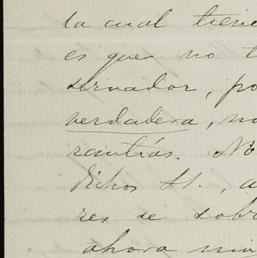 la cual tiene
es que no t
servador, po
verdadera, no
rantías. No
dichos H., a
res de sobr
ahora mis